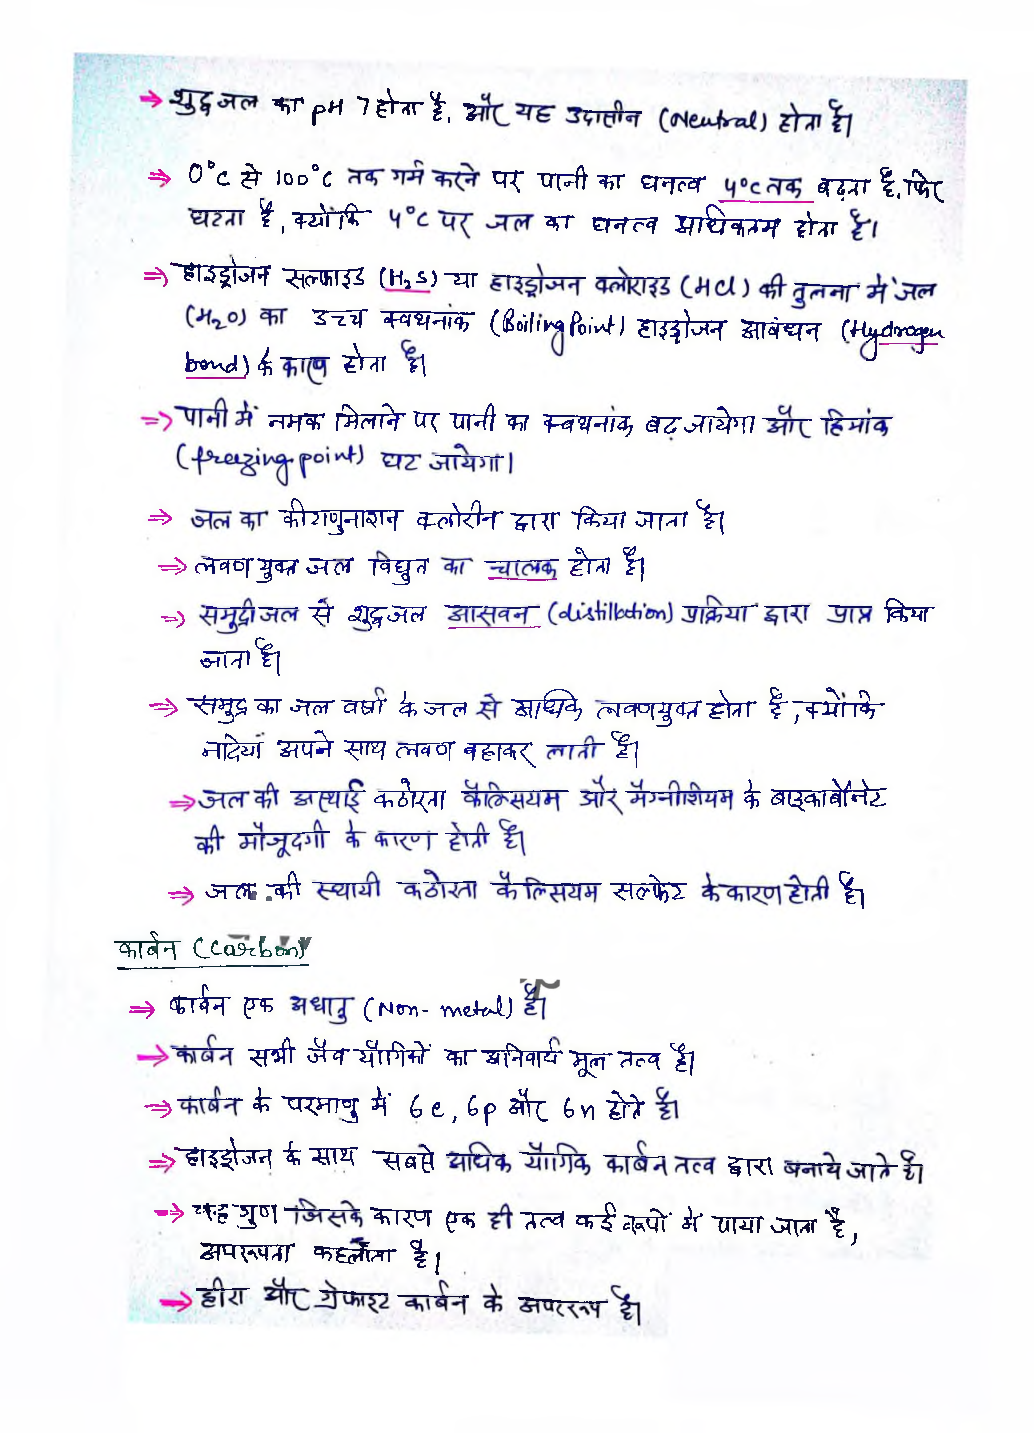 → शुद्ध जल का pH 7 होता है, और यह उदासीन (Neutral) होता है।
⇒ 0°C से 100°C तक गर्म करने पर पानी का घनत्व 4°C तक बढ़ता है, फिर
घटता है, क्योंकि 4°C पर जल का घनत्व अधिकतम होता है।
⇒ हाइड्रोजन सल्फाइड (H₂S) या हाइड्रोजन क्लोराइड (HCl) की तुलना में जल
(H₂O) का उच्च क्वथनांक (Boiling Point) हाइड्रोजन आबंधन (Hydrogen
bond) के कारण होता है।
⇒ पानी में नमक मिलाने पर पानी का क्वथनांक बढ़ जायेगा और हिमांक
(freezing point) घट जायेगा।
⇒ जल का कीटाणुनाशन क्लोरीन द्वारा किया जाता है।
⇒ लवण युक्त जल विद्युत का चालक होता है।
⇒ समुद्री जल से शुद्ध जल आसवन (distillation) प्रक्रिया द्वारा प्राप्त किया
जाता है।
⇒ समुद्र का जल वर्षा के जल से अधिक लवणयुक्त होता है, क्योंकि
नदियाँ अपने साथ लवण बहाकर लाती है।
⇒ जल की अस्थाई कठोरता कैल्सियम और मैग्नीशियम के बाइकार्बोनेट
की मौजूदगी के कारण होती है।
⇒ जल की स्थायी कठोरता कैल्सियम सल्फेट के कारण होती है।
कार्बन (Carbon)
⇒ कार्बन एक अधातु (Non-metal) है।
→ कार्बन सभी जैव यौगिकों का अनिवार्य मूल तत्व है।
⇒ कार्बन के परमाणु में 6e, 6p और 6n होते है।
⇒ हाइड्रोजन के साथ सबसे अधिक यौगिक कार्बन तत्व द्वारा बनाये जाते है।
→ वह गुण जिसके कारण एक ही तत्व कई रूपों में पाया जाता है,
अपररूपता कहलाता है।
→ हीरा और ग्रेफाइट कार्बन के अपररूप है।